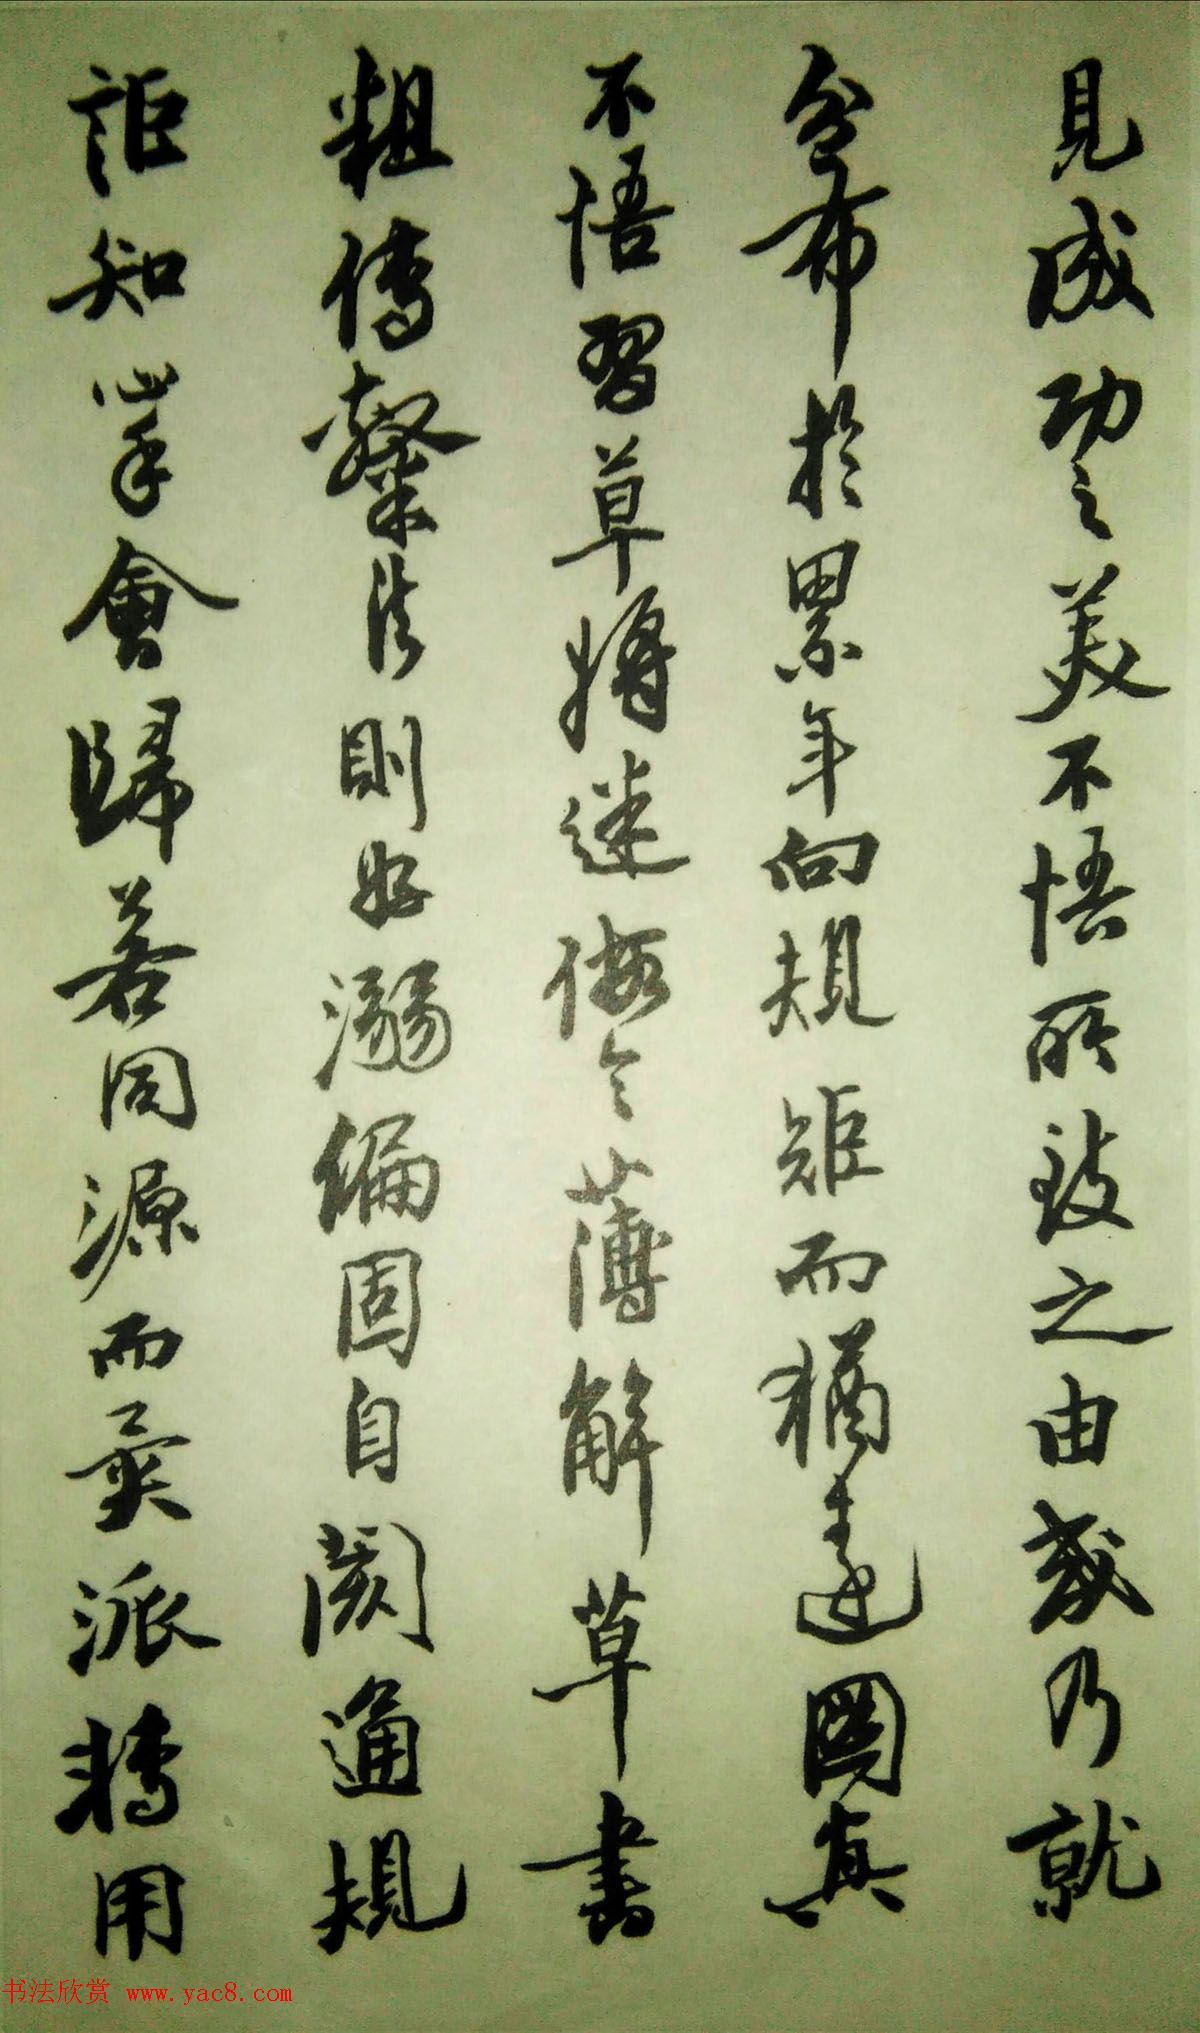 見成功之美不悟所致之由或乃就
分布於累年向規矩而猶遠圖真
不悟習草將迷假令薄解草書
粗傳隸法則好溺偏固自閡通規
詎知心手會歸若同源而異派轉用
书法欣赏 www.yac8.com